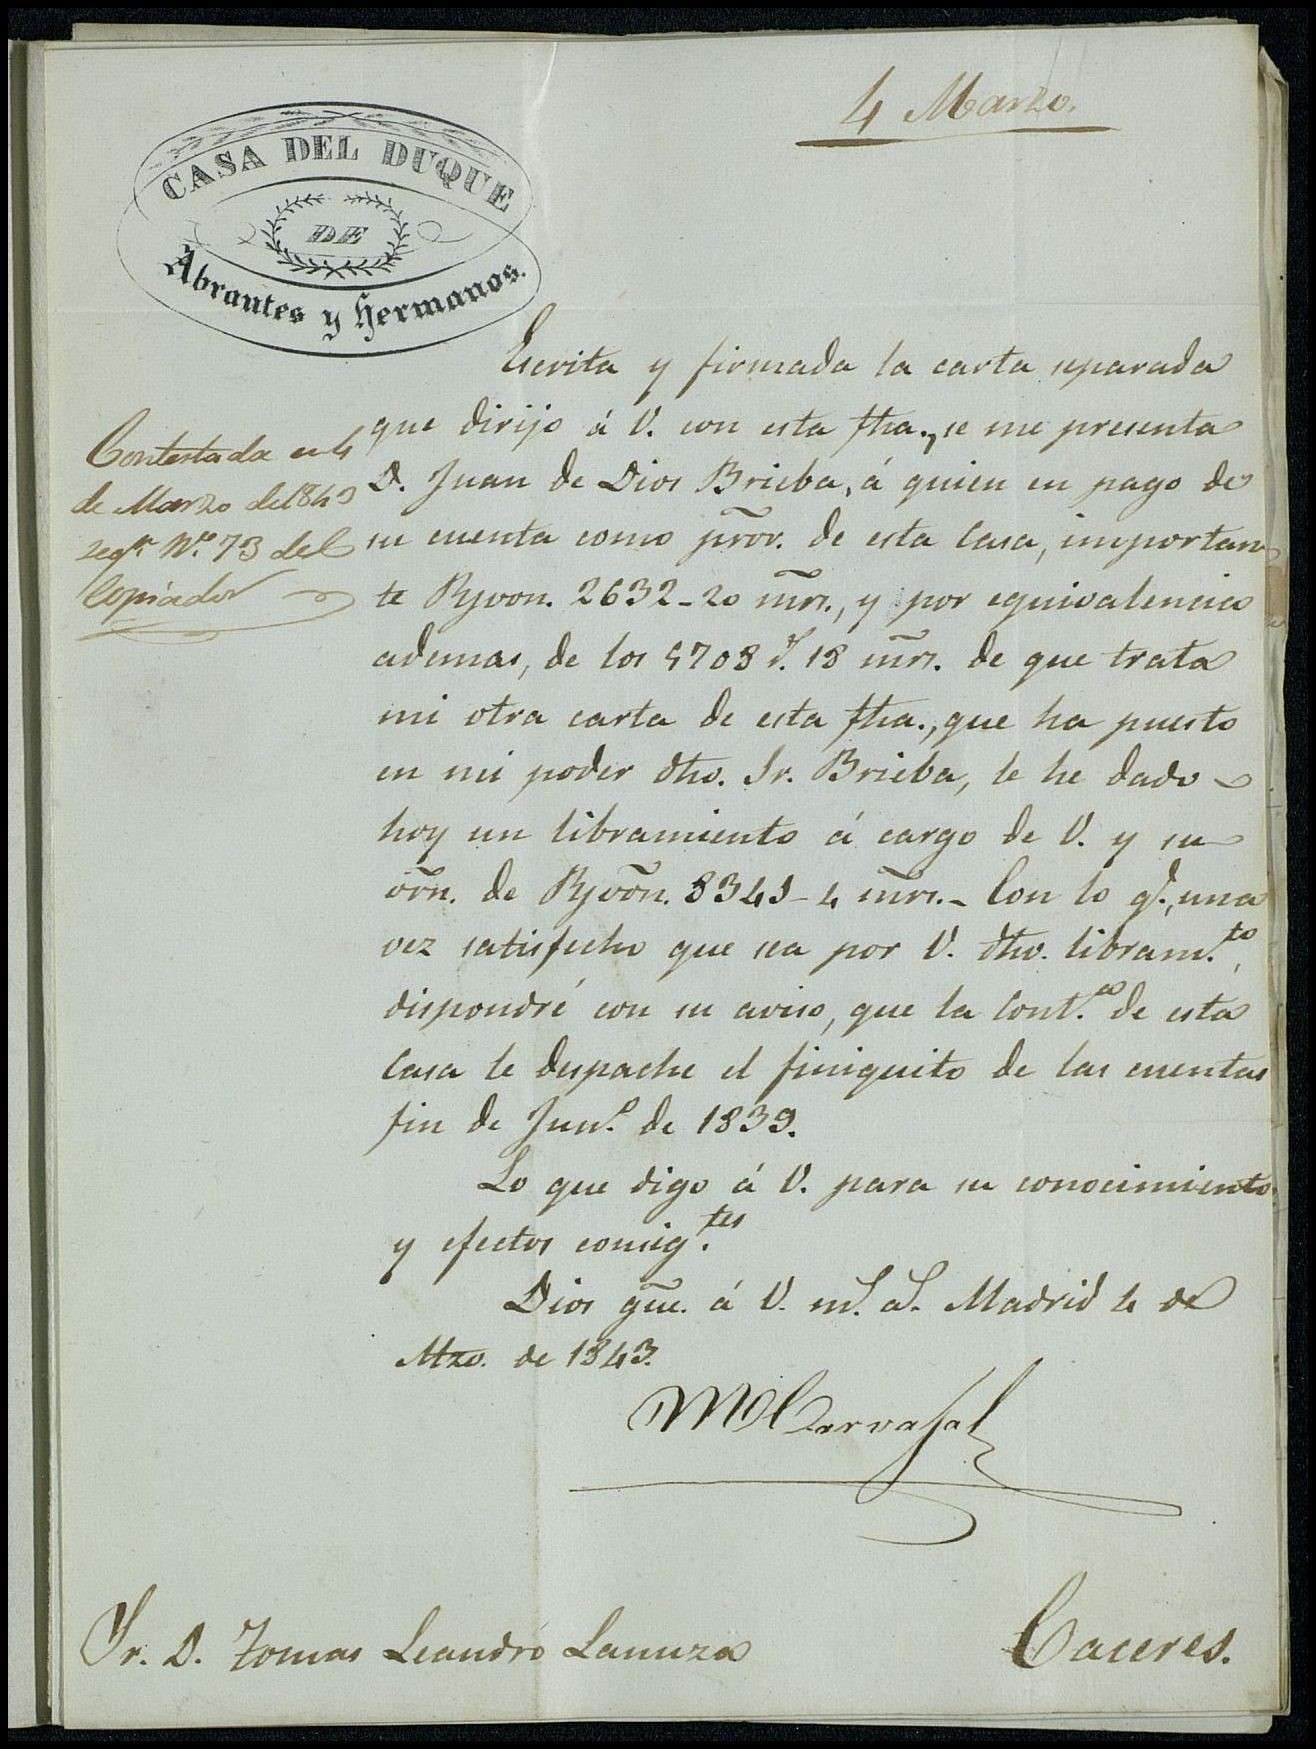 4 Marzo.
CASA DEL DUQUE
DE
Abrantes y Hermanos.
Escrita y firmada la carta separada
que dirijo á V. con esta fha., se me presenta
D. Juan de Dios Brieba, á quien en pago de
su cuenta como prõr. de esta Casa, importan-
te Rsvon. 2632-20 mrs., y por equivalencia
ademas, de los 5708 rs. 18 mrs. de que trata
mi otra carta de esta fha., que ha puesto
en mi poder dho. Sr. Brieba, le he dado
hoy un libramiento á cargo de V. y su
orñ. de Rsvon. 8341-4 mrs.- Con lo q.e, una
vez satisfecho que sea por V. dho. libram.to,
dispondré con su aviso, que la Cont.a de esta
Casa le despache el finiquito de las cuentas
fin de Jun.o de 1839.
Lo que digo á V. para su conocimiento
y efectos consig.tes
Dios gue. á V. m.s a.s Madrid 4 de
Mzo. de 1843.
M Carvajal
Contestada en 4
de Marzo de 1843
segn. N.o 73 del
Copiador
Sr. D. Tomas Leandro Lanuza
Caceres.